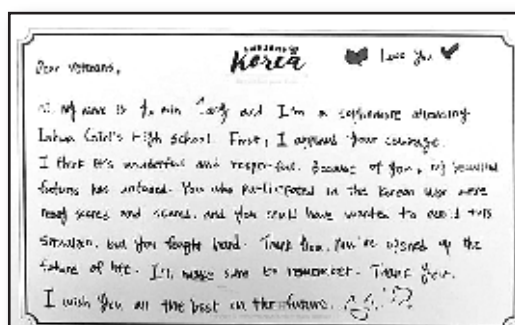 Korea
Love you
Dear Veterans,
Hi, my name is and I'm a sophomore attending
Girl's High School. First, I applaud your courage.
I think it's wonderful and respectful. Because of you, my beautiful
future has You who participated in the Korean War were
scared and scared, and you could have wanted to avoid this
situation, but you fought hard. Thank you, you've opened up the
future of I'll make sure to remember. Thank you.
I wish you all the best in the future.